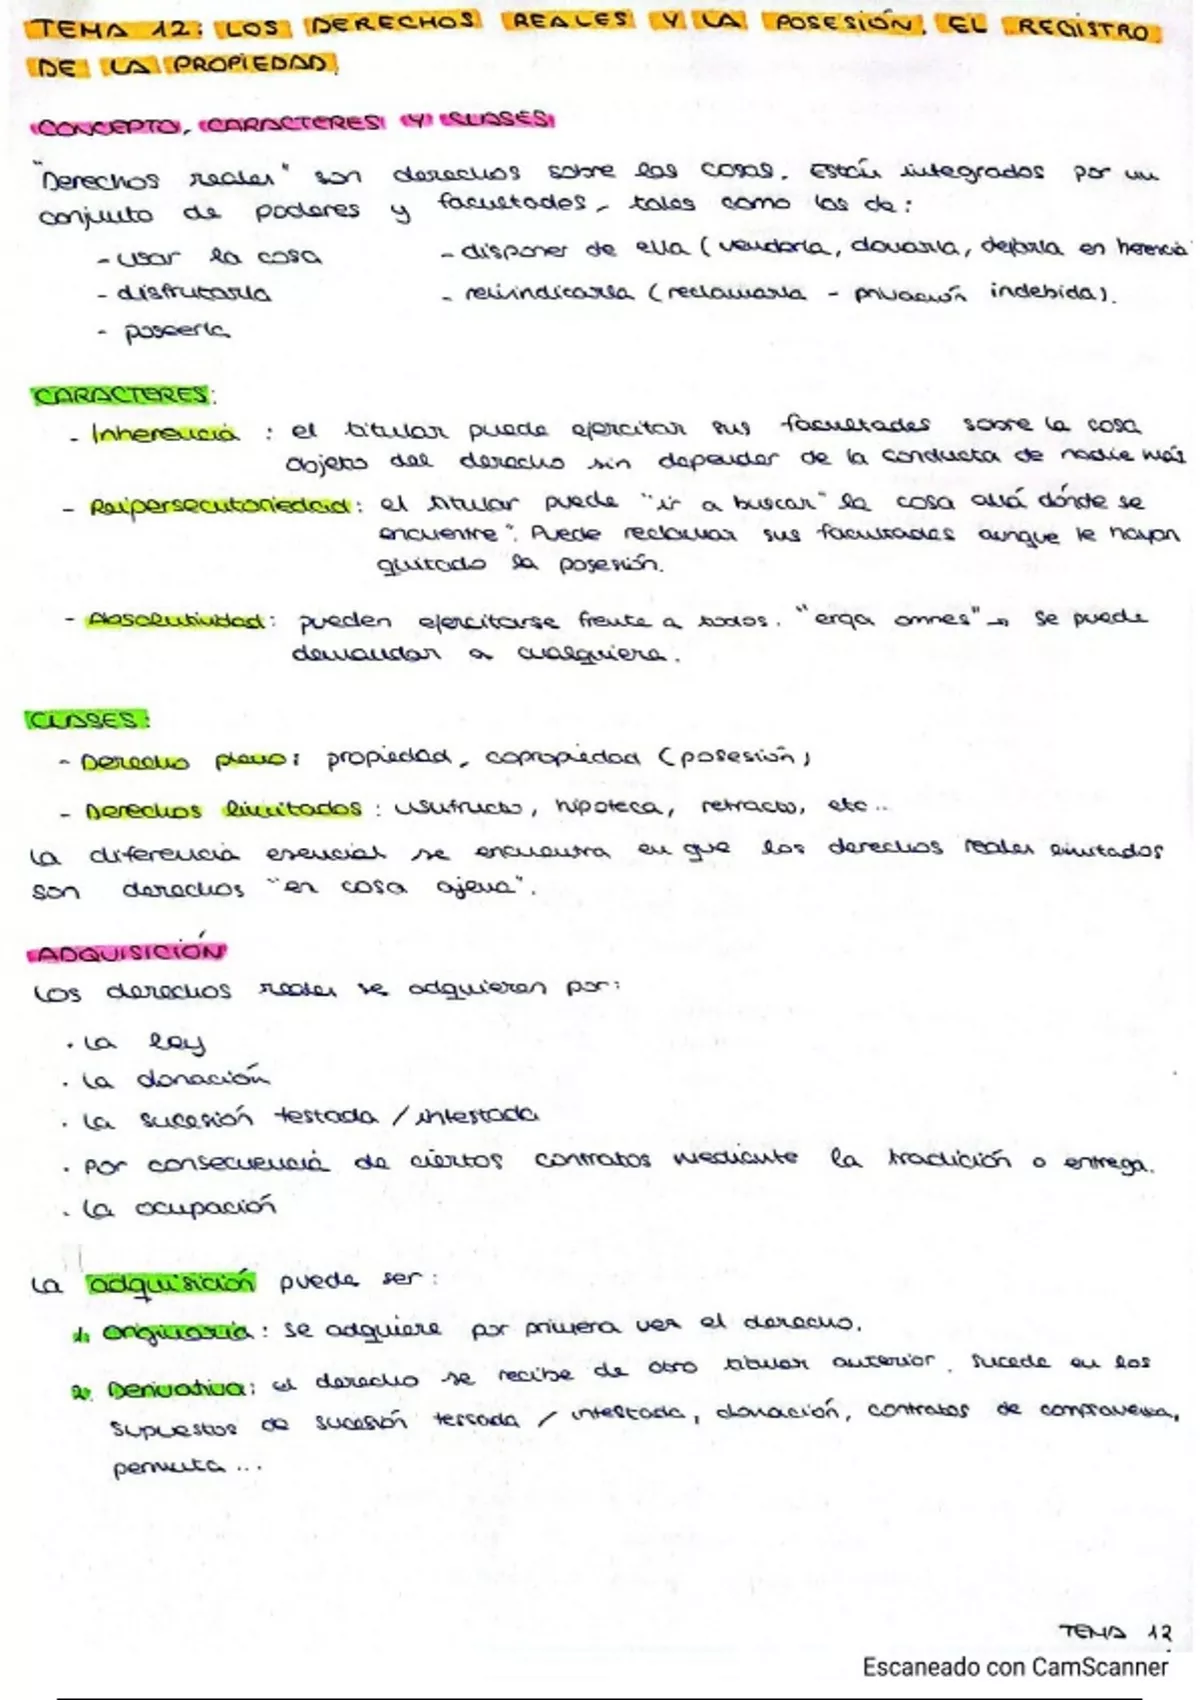 TEMA 12: LOS DERECHOS REALES Y LA POSESIÓN. EL REGISTRO
DE LA PROPIEDAD.
CONCEPTO, CARACTERES Y CLASES
"Derechos reales" son derechos sobre las cosas. Están integrados por un
conjunto de poderes y facultades, tales como los de:
- usar la cosa
- disfrutarla
- poseerla
- disponer de ella (venderla, donarla, dejarla en herencia
- reivindicarla (reclamarla - privación indebida).
CARACTERES:
- Inherencia : el titular puede ejercitar sus facultades sobre la cosa
objeto del derecho sin depender de la conducta de nadie más
- Reipersecutoriedad: el titular puede "ir a buscar" la cosa allá dónde se
encuentre". Puede reclamar sus facultades aunque le hayan
quitado la posesión.
- Absolutividad: pueden ejercitarse frente a todos. "erga omnes" → se puede
demandar a cualquiera.
CLASES:
- Derecho pleno: propiedad, copropiedad (posesión)
- Derechos limitados : usufructo, hipoteca, retracto, etc..
La diferencia esencial se encuentra en que los derechos reales limitados
son derechos "en cosa ajena".
ADQUISICIÓN
Los derechos reales se adquieren por:
· La ley
· La donación
· La sucesión testada / intestada
· Por consecuencia de ciertos contratos mediante la tradición o entrega.
· La ocupación
La adquisición puede ser :
1. Originaria : se adquiere por primera vez el derecho.
2. Derivativa: el derecho se recibe de otro titular anterior. Sucede en los
supuestos de sucesión testada / intestada, donación, contratos de compraventa,
permuta ...
TEMA 12
Escaneado con CamScanner